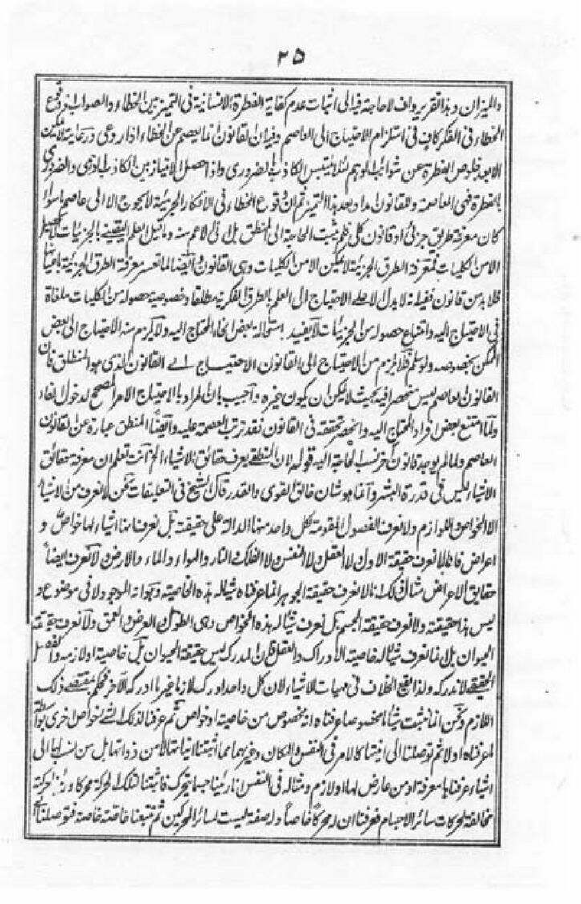 ٢٥
والميزان وبذا التقرير واف لا حاجة فيه الى اثبات عدم كفاية الفطرة الانسانية فى التميز بين الخطاء والصواب اذ وقوع
الخطاء فى الفكر كاف فى استلزام الاحتياج الى العاصم وفيه ان القانون انما يعصم عن الخطاء اذا روعى
الابعد خلوص الفطرة عن شوائب الوهم لئلا يلتبس الكاذب بالضرورى واذا حصل الامتياز بين الكاذب
بالفطرة فهى العاصمة والقانون بعد هذا التميز ثم ان وقوع الخطاء فى الافكار الجزئية لا يحوج الا الى عاصم سواء
كان معرفة طريق جزئى او قانون كلى فلم يثبت الحاجة الى المنطق بل الى الاعم منه
الا من الكليات فمعرفة الطرق الجزئية لا يمكن الا من الكليات وهى القانون وايضا معرفة الطرق الجزئية
فلا بد من قانون ففيه انه لا يدل الا على الاحتياج الى العلم بالطرق الفكرية مطلقا وخصوصية حصوله من الكليات ملغاة
فى الاحتياج اليه وامتناع حصوله من الجزئيات لا يفيد استحالة بعض انحاء المحتاج اليه ولا يلزم منه الاحتياج الى البعض
الممكن بخصوصه ولو سلم فلا يلزم من الاحتياج الى القانون الاحتياج الى القانون الذى هو المنطق فان
القانون العاصم ليس منحصرا فيه بحيث لا يمكن ان يكون غيره واجيب بان المراد بالاحتياج الامر المصحح لدخول الفاء
ولما امتنع بعض افراد المحتاج اليه وانحصر تحققه فى القانون فقد ترتب العصمة عليه وايضا المنطق عبارة عن القانون
العاصم ولما لم يوجد قانون غيره ثبت الحاجة اليه قوله لان المنطقى يعرف حقائق الاشياء الخ انت تعلم ان معرفة حقائق
الاشياء ليس فى قدرة البشر وانما هو شان خالق القوى والقدر قال الشيخ فى التعليقات نحن لا نعرف من الاشياء
الا الخواص واللوازم ولا نعرف الفصول المقومة لكل واحد منها الدالة على حقيقته بل نعرف انها اشياء لها خواص و
اعراض فانا لا نعرف حقيقة الاول ولا العقل ولا النفس ولا الفلك والنار والهواء والماء والارض ولا نعرف ايضا
حقايق الاعراض مثال ذلك انا لا نعرف حقيقة الجوهر انما عرفنا شيئا له هذه الخاصية وهو انه الموجود لا فى موضوع و
ليس هذا حقيقته ولا نعرف حقيقة الجسم بل نعرف شيئا له هذه الخواص وهى الطول والعرض والعمق ولا نعرف حقيقة
الحيوان بل انما نعرف شيئا له خاصية الادراك والفعل فان المدرك ليس حقيقة الحيوان بل خاصية او لازم والفصل
الحقيقى لا ندركه ولذا يقع الخلاف فى مهيات الاشياء لان كل واحد ادرك لازما غير ما ادركه الآخر فحكم بمقتضى ذلك
اللازم ونحن انما نثبت شيئا ما مخصوصا عرفنا انه مخصوص من خاصية او خواص ثم عرفنا لذلك الشئ خواص اخرى بواسطة
ما عرفناه اولا ثم توصلنا الى انيتها كالامر فى النفس والمكان وغيرهما مما اثبتنا انياتها لا من ذواتها بل من نسب لها الى
اشياء عرفناها او من عارض لها او لازم ومثاله فى النفس انا رئينا جسما يتحرك فاثبتنا لتلك الحركة محركا ورئينا حركة
مخالفة لحركات سائر الاجسام فعرفنا ان له محركا خاصا او له صفة ليست لسائر المحركين ثم تتبعنا خاصة خاصة فتوصلنا